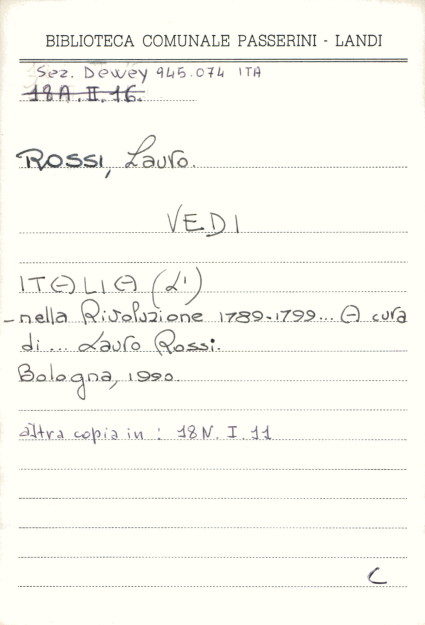 BIBLIOTECA COMUNALE PASSERINI - LANDI
Sez. Dewey 945.074 ITA
18A.II.16.
ROSSI, Lauro.
VEDI
ITALIA (L')
-nella Rivoluzione 1789-1799... A cura
di... Lauro Rossi.
Bologna, 1990.
altra copia in : 18 N. I. 11
C